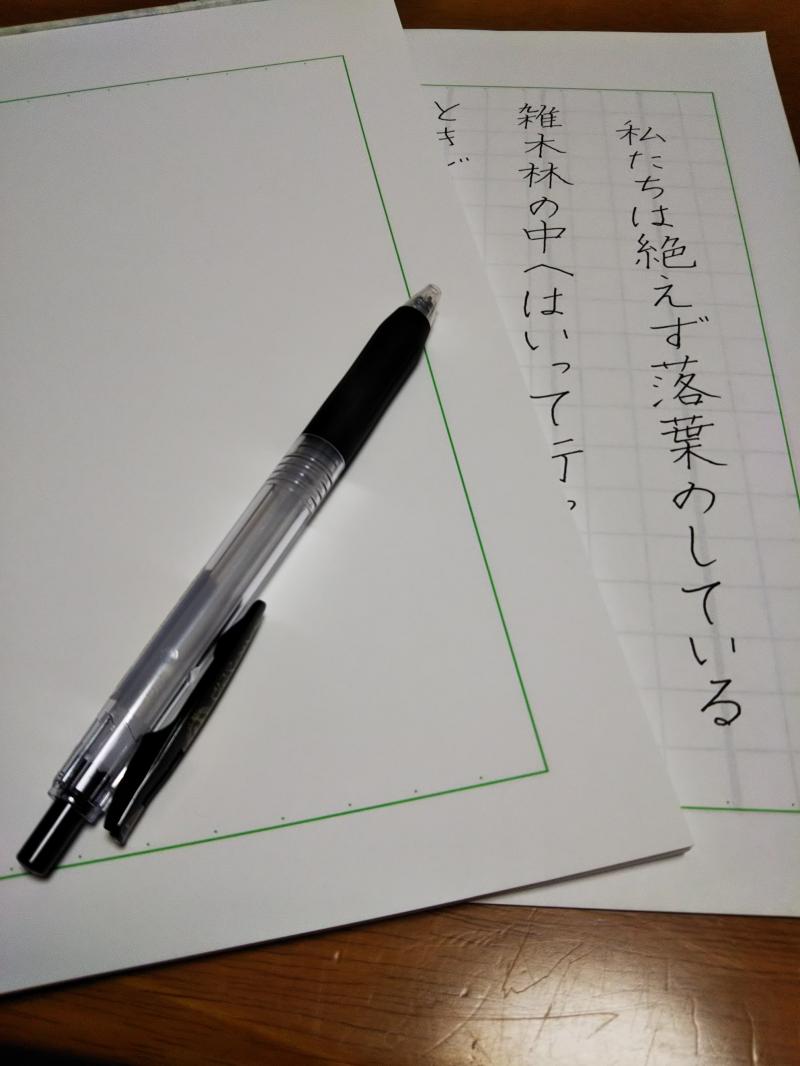 私たちは絶えず落葉のしている
雑木林の中へはいって行っ
ときど